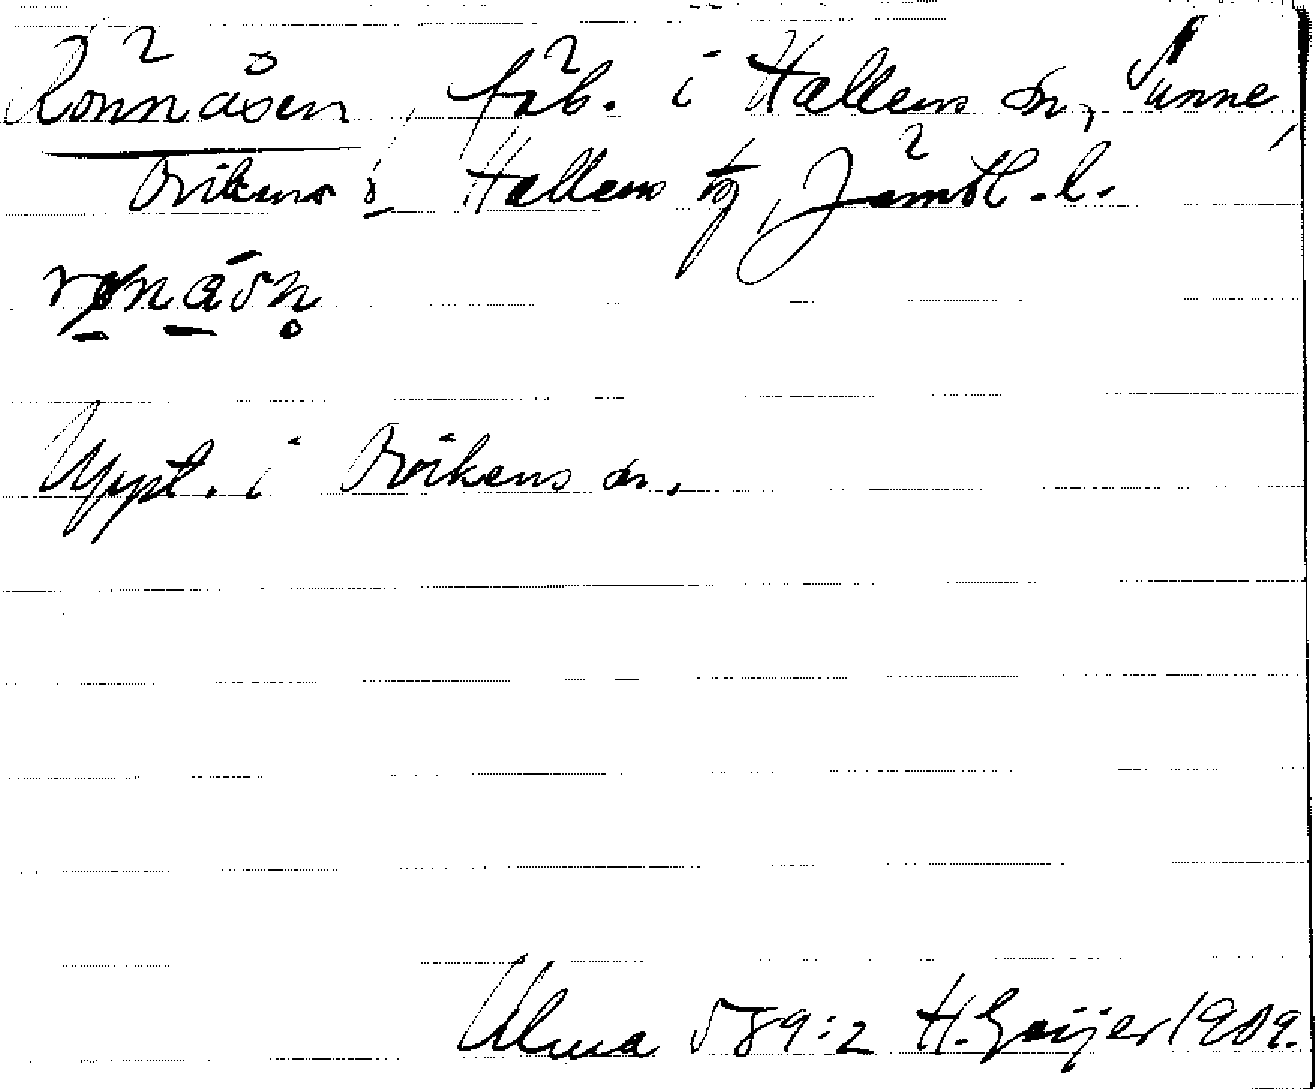 Rönnåsen, fäb. i Hallens sn, Sunne,
Ovikens o. Hallens tg, Jämtl. l.
Uppt. i Ovikens sn.
Ulma 589:2 H. Geijer 1909.